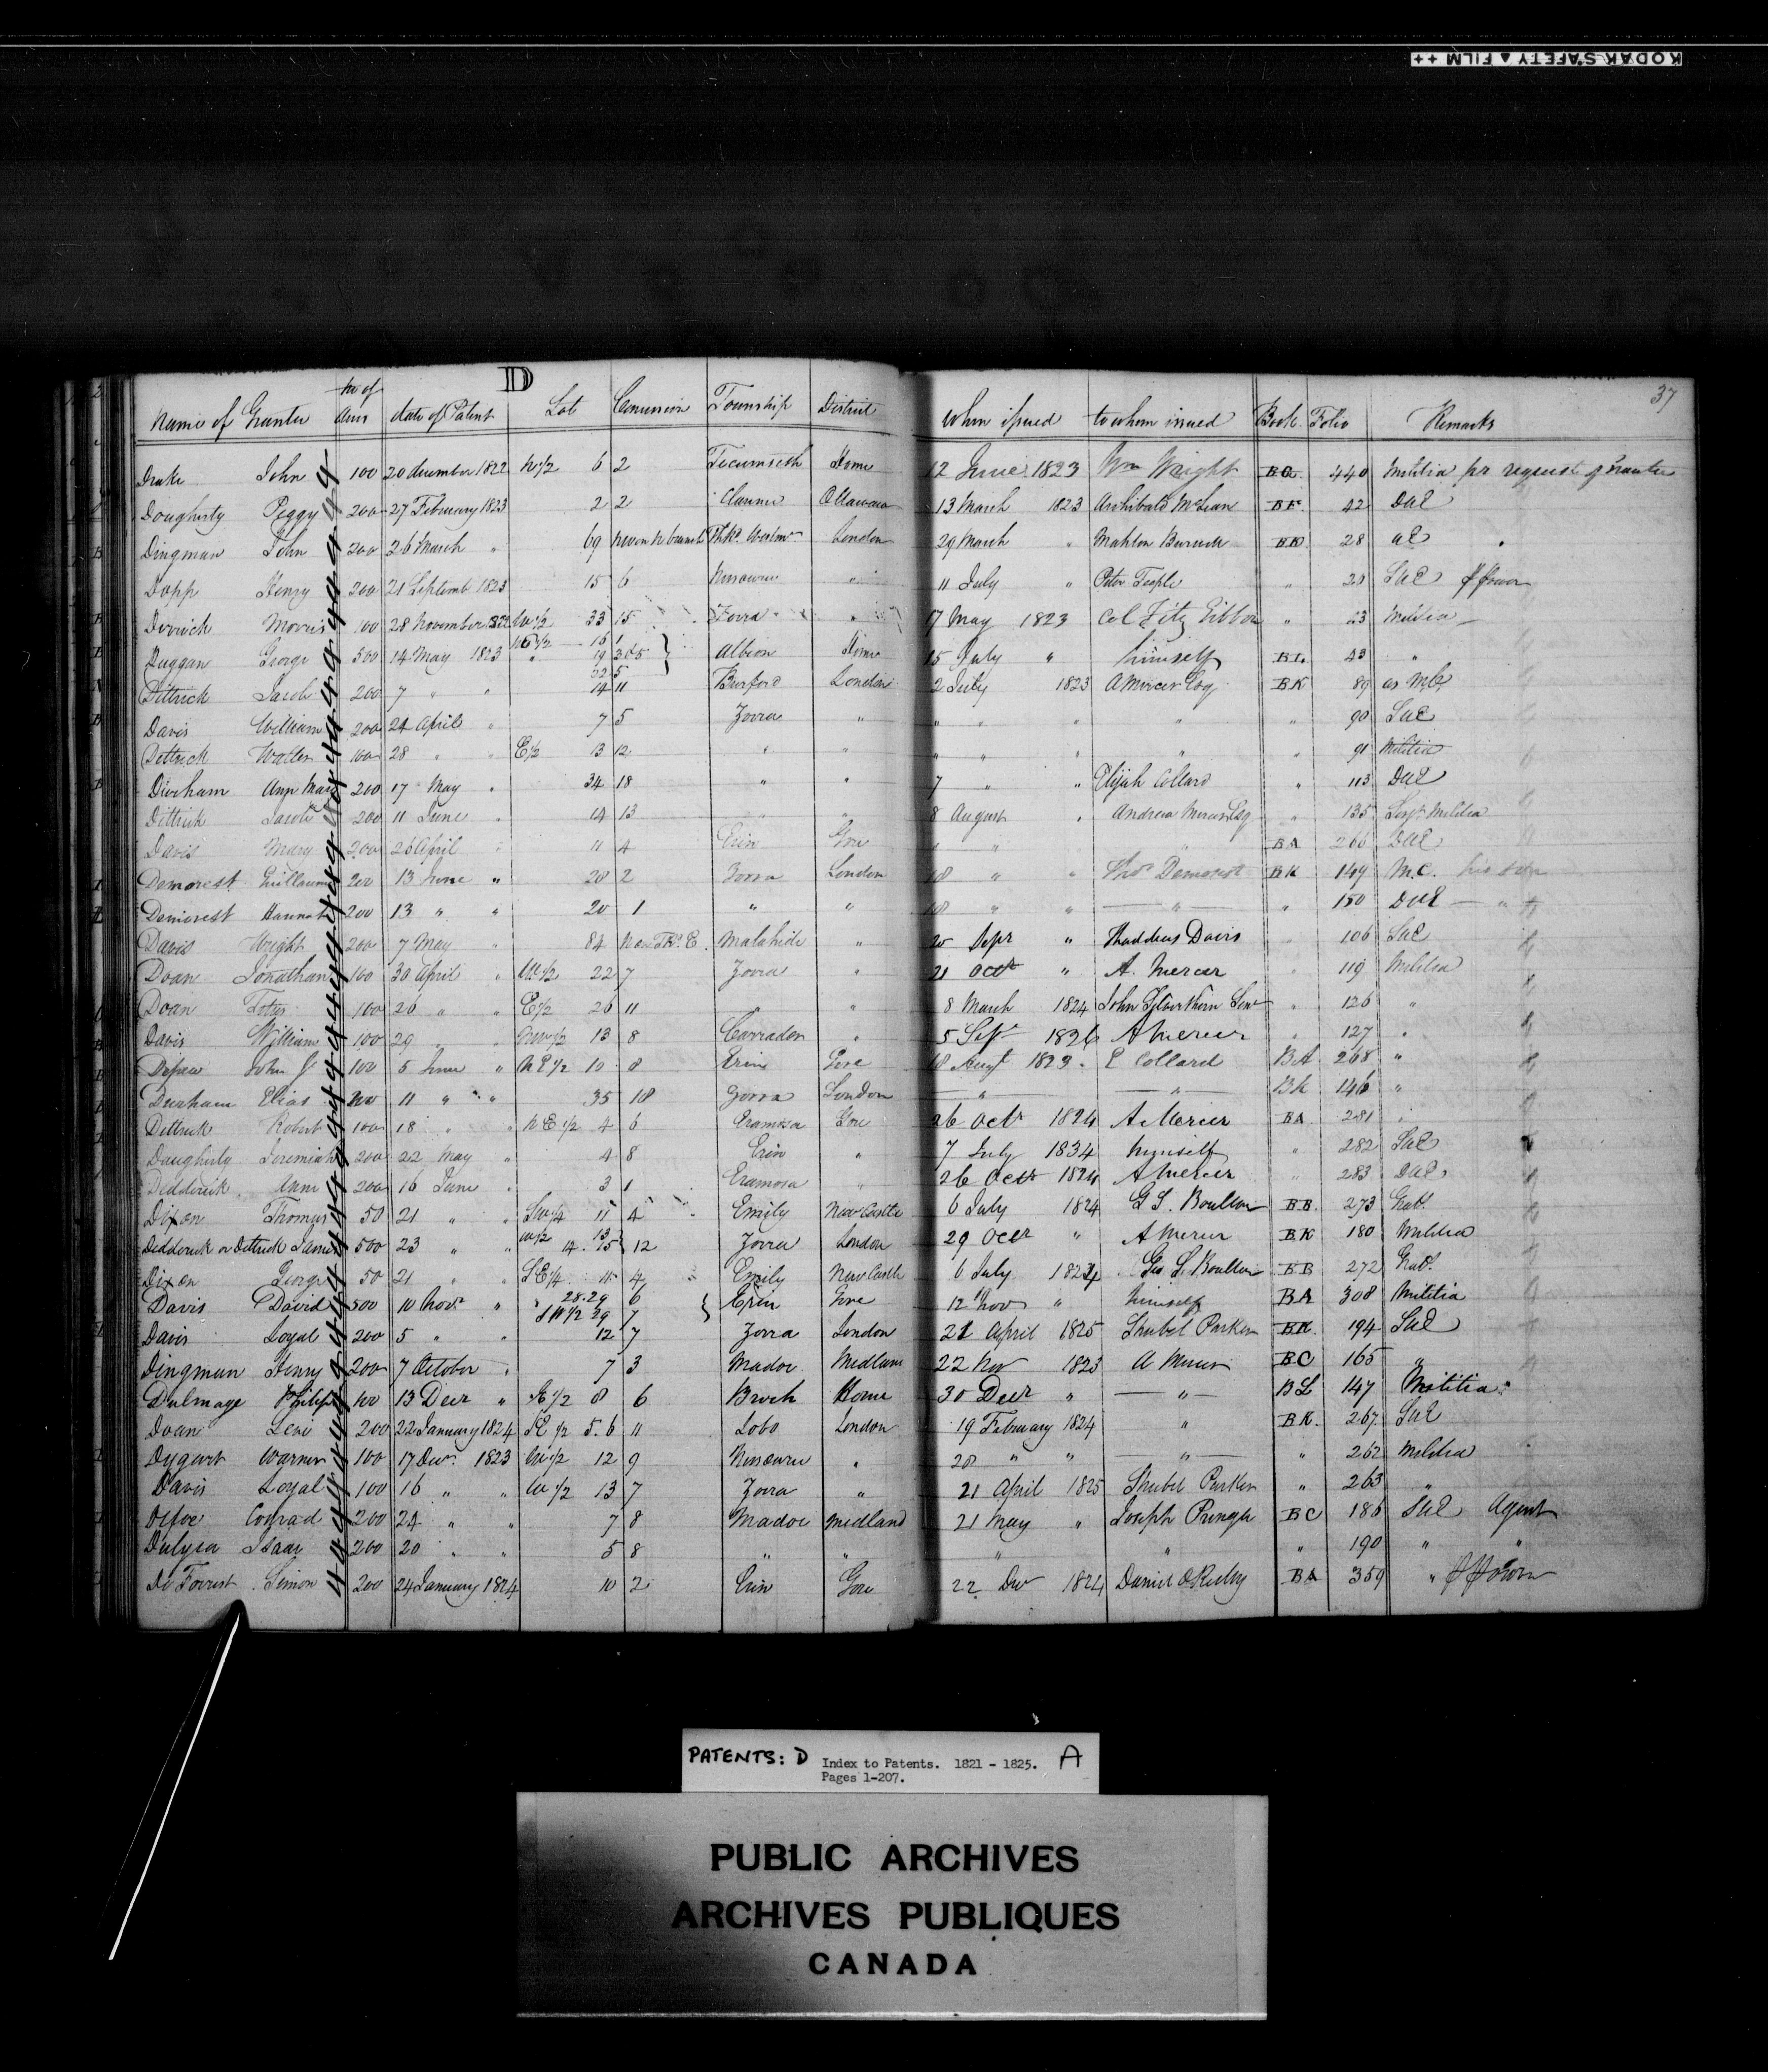 KODAK SAFETY ▲ FILM ++
D
37
Name of Grantee No of Acres date of Patent Lot Concession Township District When issued to whom issued Book Folio Remarks
Drake John 100 20 december 1822 W 1/2 6 2 Tecumseth Home 12 June 1823 Wm Wright 440 Militia pr request of Grantee
Dougherty Peggy 200 27 February 1823 2 2 Ottawa 13 March 1823 Archibald McLean 42 DUE
Dingman John 200 26 March " 69 London 29 March " Mahlon Burwell 28 UE
Dopp Henry 200 21 Septemb 1823 15 6 " 11 July " Peter Teeple " 20 SUE
Morris 100 28 November 1822 W 1/2 33 15 Zorra " 17 May 1823 Col Fitz Gibbon " 23 Militia
Duggan George 500 14 May 1823 16 1 Albion Home 15 July " himself BL 43 "
" 19
22 5
Dittrick Jacob 200 7 " " 14 11 Burford London 2 July 1823 A Mercer Esq BK 89 as MC
Davis William 200 24 April " 7 5 Zorra " " " " " " 90 SUE
Dittrick Walter 100 28 " " E 1/2 13 12 " " " " " " " 91 Militia
Durham Ann Mary 200 17 May " 34 18 " " 7 " " Elijah Collard " 113 DUE
Dittrick Jacob 200 11 June " 14 13 " " 8 August " Andrew Mercer Esq " 135 Sergt Militia
Davis Mary 200 26 April " 11 4 Erin Gore " " " BA 266 DUE
Demorest Guillaume 200 13 June " 20 2 Zorra London 18 " " Demorest BK 149 M.C.
Demorest Hannah 200 13 " " 20 1 " " 18 " " " " 150 DUE "
Davis Wright 200 7 May " 84 Malahide " 20 Sepr " Thaddeus Davis " 106 SUE
Doan Jonathan 100 30 April " W 1/2 22 7 Zorra " 21 Octr " A. Mercer " 119 Militia
Doan Titus 100 26 " " E 1/2 26 11 " " 8 March 1824 John Silverthorn " 126 "
Davis William 100 29 " " 13 8 Carradoc " 5 Sepr 1826 A Mercer " 127 "
Depew John 100 5 June " N E 1/2 10 8 Erin Gore 18 Augt 1823 E Collard BA 268 "
Durham Elias 200 11 " " 35 18 Zorra London " " BK 146 "
Dittrick Robert 100 18 " " N E 1/2 4 6 Eramosa Gore 26 Octr 1824 A Mercer BA 281 "
Daugherty Jeremiah 200 22 May " 4 8 Erin " 7 July 1834 himself " 282 SUE
Dedderick Ann 200 16 June " 3 1 Eramosa " 26 Octr 1824 A Mercer " 283 DUE
Dixon Thomas 50 21 " " SW 1/4 11 4 Emily New Castle 6 July 1824 G S. Boulton BB 273
Dedderick or Dettrick James 500 23 " " W 1/2 13 14. 15 12 Zorra London 29 Octr " A Mercer BK 180 Militia
Dixon George 50 21 " " SE 1/4 11 4 Emily New Castle 6 July 1824 Geo S. Boulton BB 272
Davis David 500 10 Novr " 28. 29 6 Erin Gore 12 Nov " himself BA 308 Militia
29 7
Davis Loyal 200 5 " " 12 7 Zorra London 21 April 1825 Shubel Parker BK 194 SUE
Dingman Henry 200 7 October " 7 3 Madoc Midland 22 Nov 1823 A Mercer BC 165 "
Dulmage Philip 100 13 Decr " E 1/2 8 6 Brock Home 30 Decr " " BL 147 Militia
Doan Levi 200 22 January 1824 SE 1/2 5. 6 11 Lobo London 19 February 1824 " BK. 267 SUE
Dygart Warner 100 17 Decr. 1823 W 1/2 12 9 " 20 " " " " 262 Militia
Davis Loyal 100 16 " " W 1/2 13 7 Zorra " 21 April 1825 Shubel Parker " 263 "
Defoe Conrad 200 24 " " 7 8 Madoc Midland 21 May " Joseph Pringle BC 186 SUE Agent
Dulyea Isaac 200 20 " " 5 8 " " " " " 190 " "
De Forrest Simon 200 24 January 1824 10 2 Erin Gore 22 Decr 1824 Daniel O Reily BA 359 "
PATENTS: D Index to Patents. 1821 - 1825. A
Pages 1-207.
PUBLIC ARCHIVES
ARCHIVES PUBLIQUES
CANADA